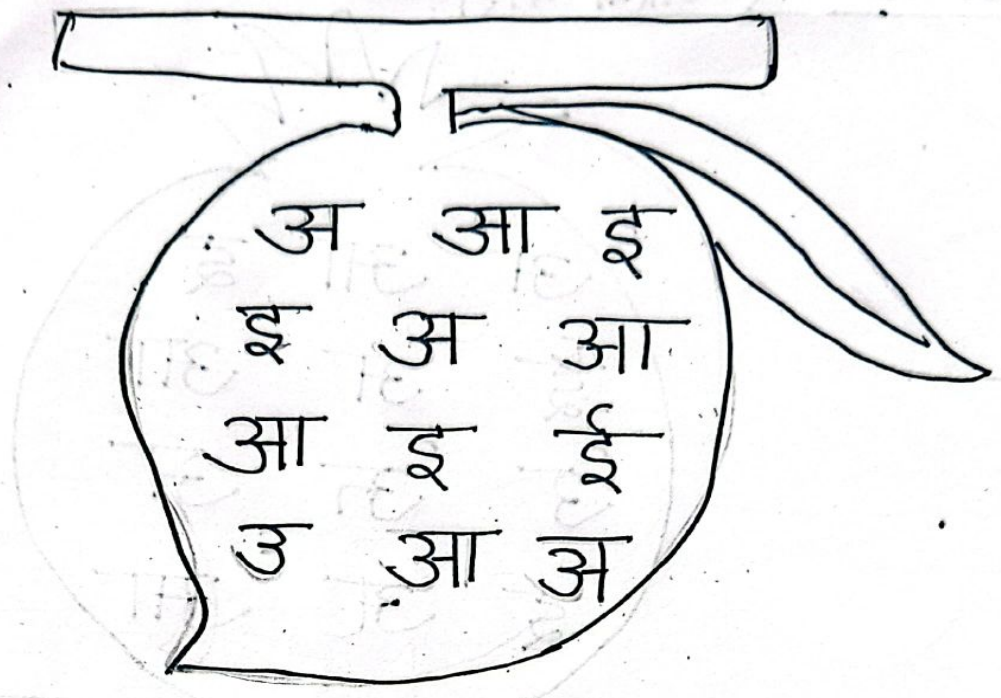 अ आ इ
इ अ आ
आ इ ई
उ आ अ